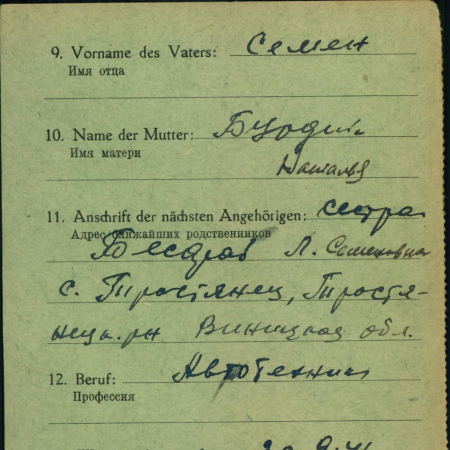 9. Vorname des Vaters: Семен
Имя отца
10. Name der Mutter:
Имя матери
Наталья
11. Anschrift der nächsten Angehörigen: сестра
Адрес ближайших родственников
Л. Семеновна
с. Тростянец, Тростя-
нецк. р-н Виницкая обл.
12. Beruf: Автотехник
Профессия